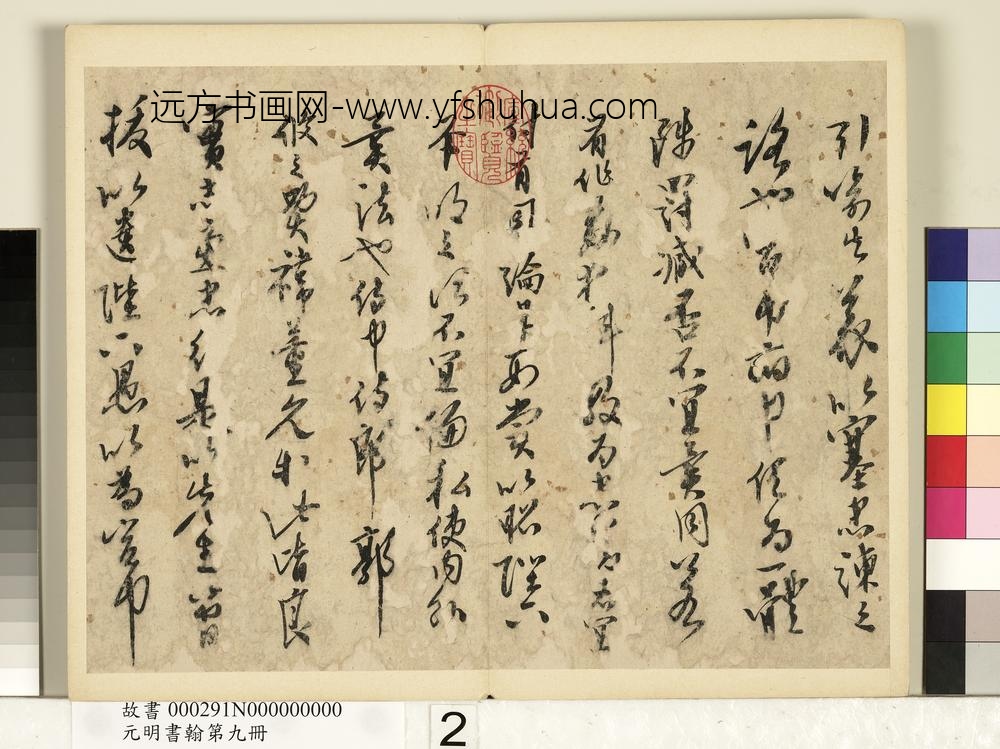 远方书画网-www.yfshuhua.com
引喻失義以塞忠諫之
路也宮中府中俱為一體
陟罰臧否不宜異同若
有作姦犯科及為忠善者宜
付有司論其刑賞以昭陛下
平明之治不宜偏私使內外
異法也侍中侍郎郭
攸之費禕董允等此皆良
實志慮忠純是以先帝簡
拔以遺陛下愚以為宮中
故書 000291N000000000
元明書翰第九冊
2